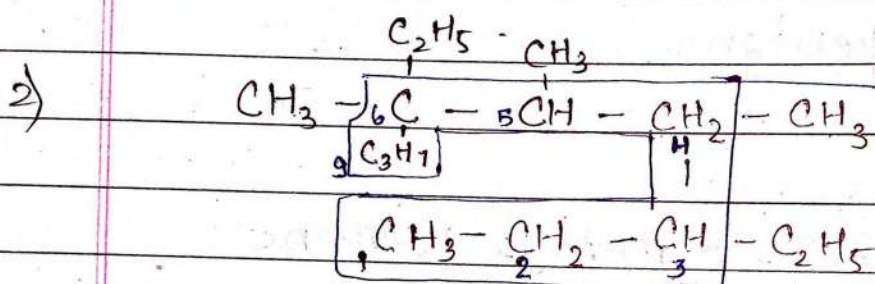 C2H5 CH3
2) CH3 - 6C - 5CH - CH2 - CH3
9 C3H7 4
1 CH3 - CH2 - CH - C2H5
2 3